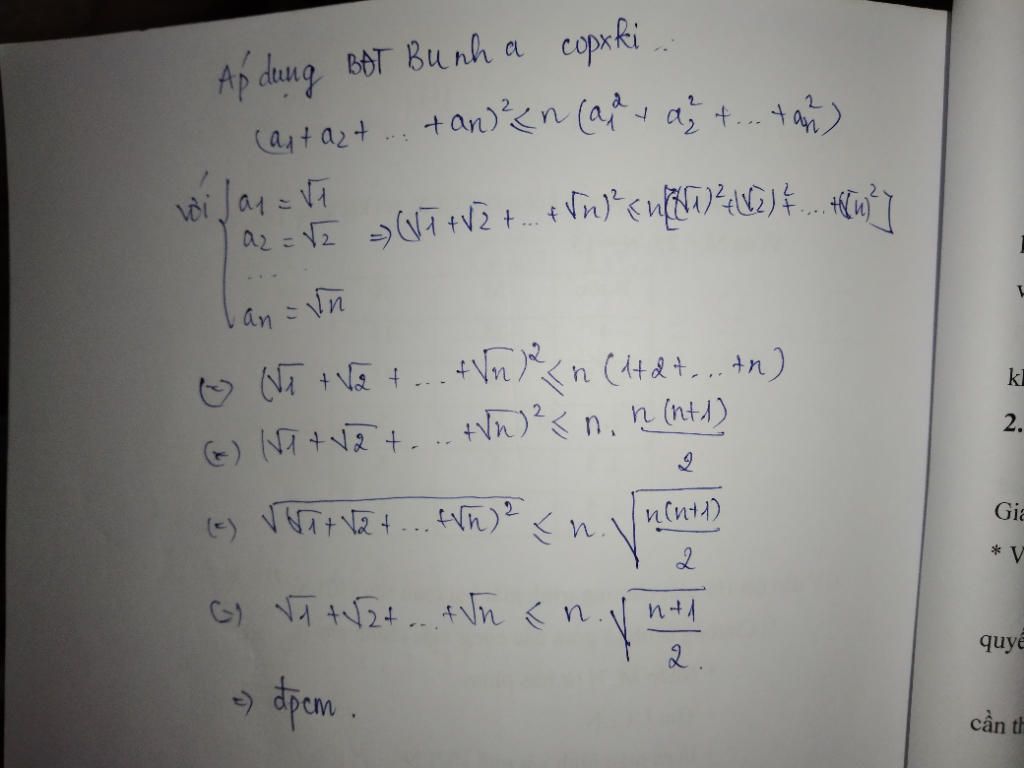 Áp dụng BĐT Bunh a copxki ..
(a₁ + a₂ + ... + aₙ)² ≤ n (a₁² + a₂² + ... + aₙ²)
với { a₁ = √1
a₂ = √2 => (√1 + √2 + ... + √n)² ≤ n[(√1)² + (√2)² + .... + (√n)²]
.....
aₙ = √n
(=) (√1 + √2 + ... + √n)² ≤ n (1+2+...+n)
(=) (√1 + √2 + ... + √n)² ≤ n. n(n+1)/2
(=) √((√1 + √2 + ... + √n)²) ≤ n. √(n(n+1)/2)
(=) √1 + √2 + ... + √n ≤ n. √((n+1)/2).
=> đpcm.
k
2.
Gia
* V
quyế
cần th